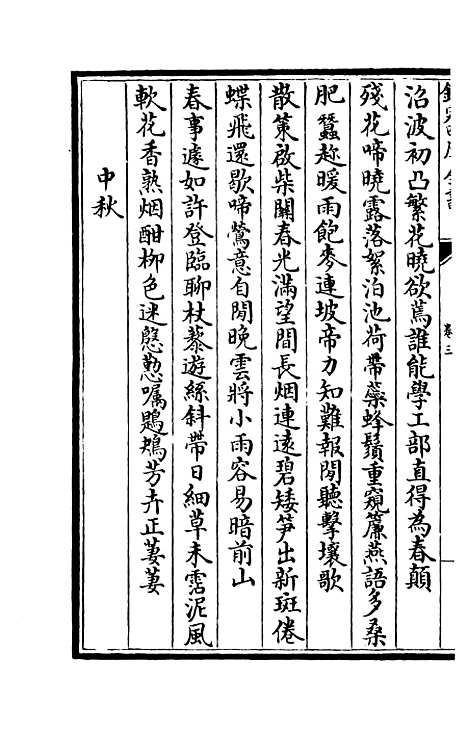 卷三
沿波初凸繁花曉欲蔫誰能學工部直得為春顛
殘花啼曉露落絮泊池荷帶蘂蜂鬚重窺簾燕語多桑
肥蠶趂暖雨飽麥連坡帝力知難報閒聽擊壤歌
散策啟柴關春光滿望間長烟連遠碧矮笋出新斑倦
蝶飛還歇啼鶯意自閒晚雲將小雨容易暗前山
春事遽如許登臨聊杖藜遊絲斜帶日細草未霑泥風
軟花香熟烟酣柳色迷慇懃囑鶗鴂芳卉正萋萋
中秋